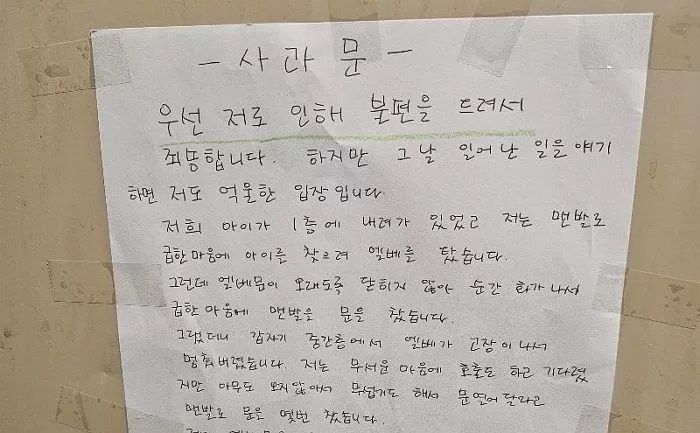 - 사 과 문 -
우선 저로 인해 불편을 드려서
죄송합니다. 하지만 그날 일어난 일을 얘기
하면 저도 억울한 입장입니다.
저희 아이가 1층에 내려가 있었고 저는 맨발로
급한마음에 아이를 찾으려 엘베를 탔습니다.
그런데 엘베문이 오래도록 닫히지 않아 순간 화가나서
급한마음에 맨발을 문을 찼습니다.
그랬더니 갑자기 중간층에서 엘베가 고장이나서
멈춰버렸습니다. 저는 무서운 마음에 호출도 하고 기다렸
지만 아무도 오지않아서 무섭기도 해서 문열어달라고
맨발로 문을 몇번 찼습니다.